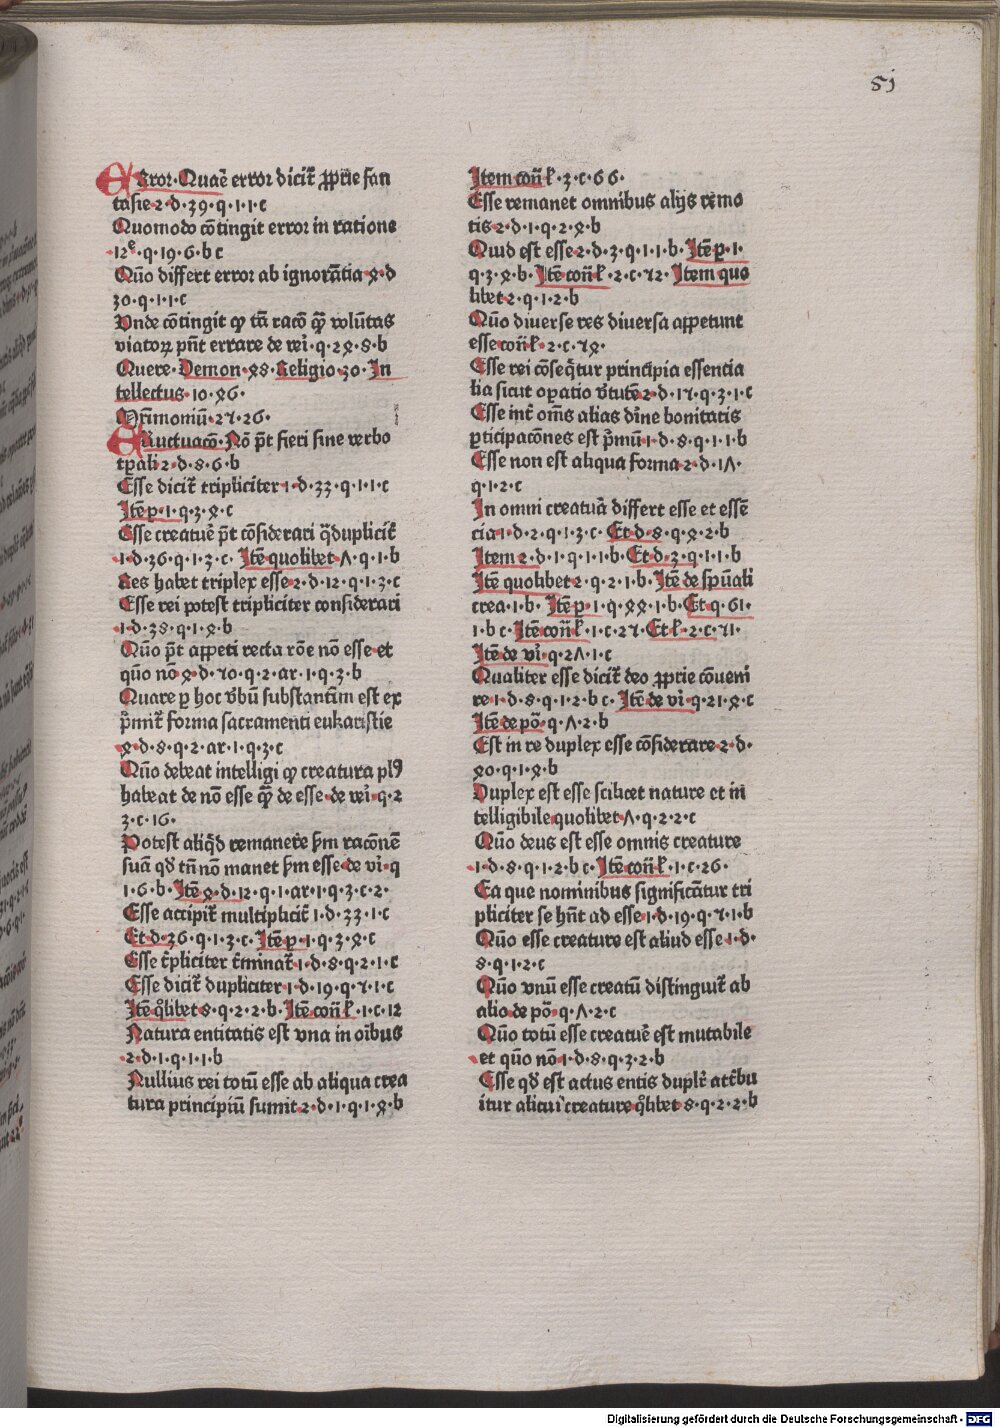 51
Error·Quaē error diciť ꝓprie fan
tasie 2·d·39·q·1·1·c
Quomodo cōtingit error in ratione
·12ᵉ·q·19·6·b c
Quō differt error ab ignorātia ·4·d
30·q·1·1·c
Vnde cōtingit ꝙ tā racō ꝙ̄ volūtas
viatoꝝ pn̄t errare de vei·q·24·8·b
Quere·Demon·48·Religio·30·In
tellectus·10·46·
27·26·
Eructuacō·Nō pōt fieri sine verbo
tꝑali 2·d·8·6·b
Esse diciť tripliciter 1·d·33·q·1·1·c
Itē p·1·q·3·4·c
Esse creature pōt cōsiderari q̄dupliciť
·1·d·36·q·1·3·c· Itē quolibet·Λ·q·1·b
Res habet triplex esse·2·d·12·q·1·3·c
Esse rei potest tripliciter considerari
·1·d·38·q·1·4·b
Quō pōt appeti recta rōe nō esse·et
quō nō·4·d·70·q·2·ar·1·q·3·b
Quare ꝑ hoc v̄bū substantiū est ex
p̄miť forma sacramenti eukaristie
·4·d·8·q·2·ar·1·q·3·c
Quō debeat intelligi ꝙ creatura plꝰ
habeat de nō esse ꝙ̄ de esse·de vei·q·2
3·c·16·
Potest aliqd remanere ẜm racōnē
suā qd tn̄ nō manet ẜm esse·de vi·q
1·6·b·Itē 4·d·12·q·1·ar·1·q·3·c·2·
Esse accipiť multipliciť 1·d·33·1·c
Et·d·36·q·1·3·c·Itē p·1·q·3·4·c
Esse t̄pliciter t̄minať 1·d·8·q·2·1·c
Esse diciť dupliciter 1·d·19·q·7·1·c
Itē qōlibet 8·q·2·2·b·Itē con̄ ł·1·c·12
Natura entitatis est vna in oībus
·2·d·1·q·1·1·b
Nullius rei totū esse ab aliqua crea
tura principiū sumit 2·d·1·q·1·4·b
Item con̄ ł·3·c·66·
Esse remanet omnibus alijs remo
tis 2·d·1·q·2·4·b
Quid est esse 2·d·3·q·1·1·b·Itē p·1·
q·3·4·b·Itē con̄ ł·2·c·72·Item quo
libet 2·q·1·2·b
Quō diuerse res diuersa appetunt
esse con̄ ł·2·c·74·
Esse rei cōseqť principia essentia
lia sicut oꝑatio v̄tutē 2·d·17·q·3·1·c
Esse int̄ om̄s alias diīne bonitatis
ꝑticipacōnes est p̄mū 1·d·8·q·1·1·b
Esse non est aliqua forma·2·d·1Λ·
q·1·2·c
In omni creatuā differt esse et essē
cia 1·d·2·q·1·3·c·Et·d·8·q·4·2·b
Item 2·d·1·q·1·1·b·Et·d·3·q·1·1·b
Itē quolibet 2·q·2·1·b·Itē de spūali
crea·1·b· Itē p·1·q·44·1·b·Et q·61·
1·b c·Itē con̄ ł·1·c·27·Et ł·2·c·71·
Itē de vi·q·2Λ·1·c
Qualiter esse diciť deo ꝓprie cōueni
re 1·d·8·q·1·2·b c·Itē de vi·q·21·4·c
Itē de pō·q·Λ·2·b
Est in re duplex esse cōsiderare·2·d·
40·q·1·4·b
Duplex est esse scilicet nature et in
telligibile quolibet·Λ·q·2·2·c
Quō deus est esse omnis creature
·1·d·8·q·1·2·b c·Itē con̄ ł·1·c·26·
Ea que nominibus significātur tri
pliciter se hn̄t ad esse 1·d·19·q·7·1·b
Quō esse creature est aliud esse·1·d·
8·q·1·2·c
Quō vnū esse creatū distinguiť ab
alio de pō·q·Λ·2·c
Quō totū esse creature est mutabile
·et quō nō 1·d·8·q·3·2·b
Esse qd est actus entis duplr̄ att̄bu
itur alicui creature qōlibet 8·q·2·2·b
Digitalisierung gefördert durch die Deutsche Forschungsgemeinschaft - DFG